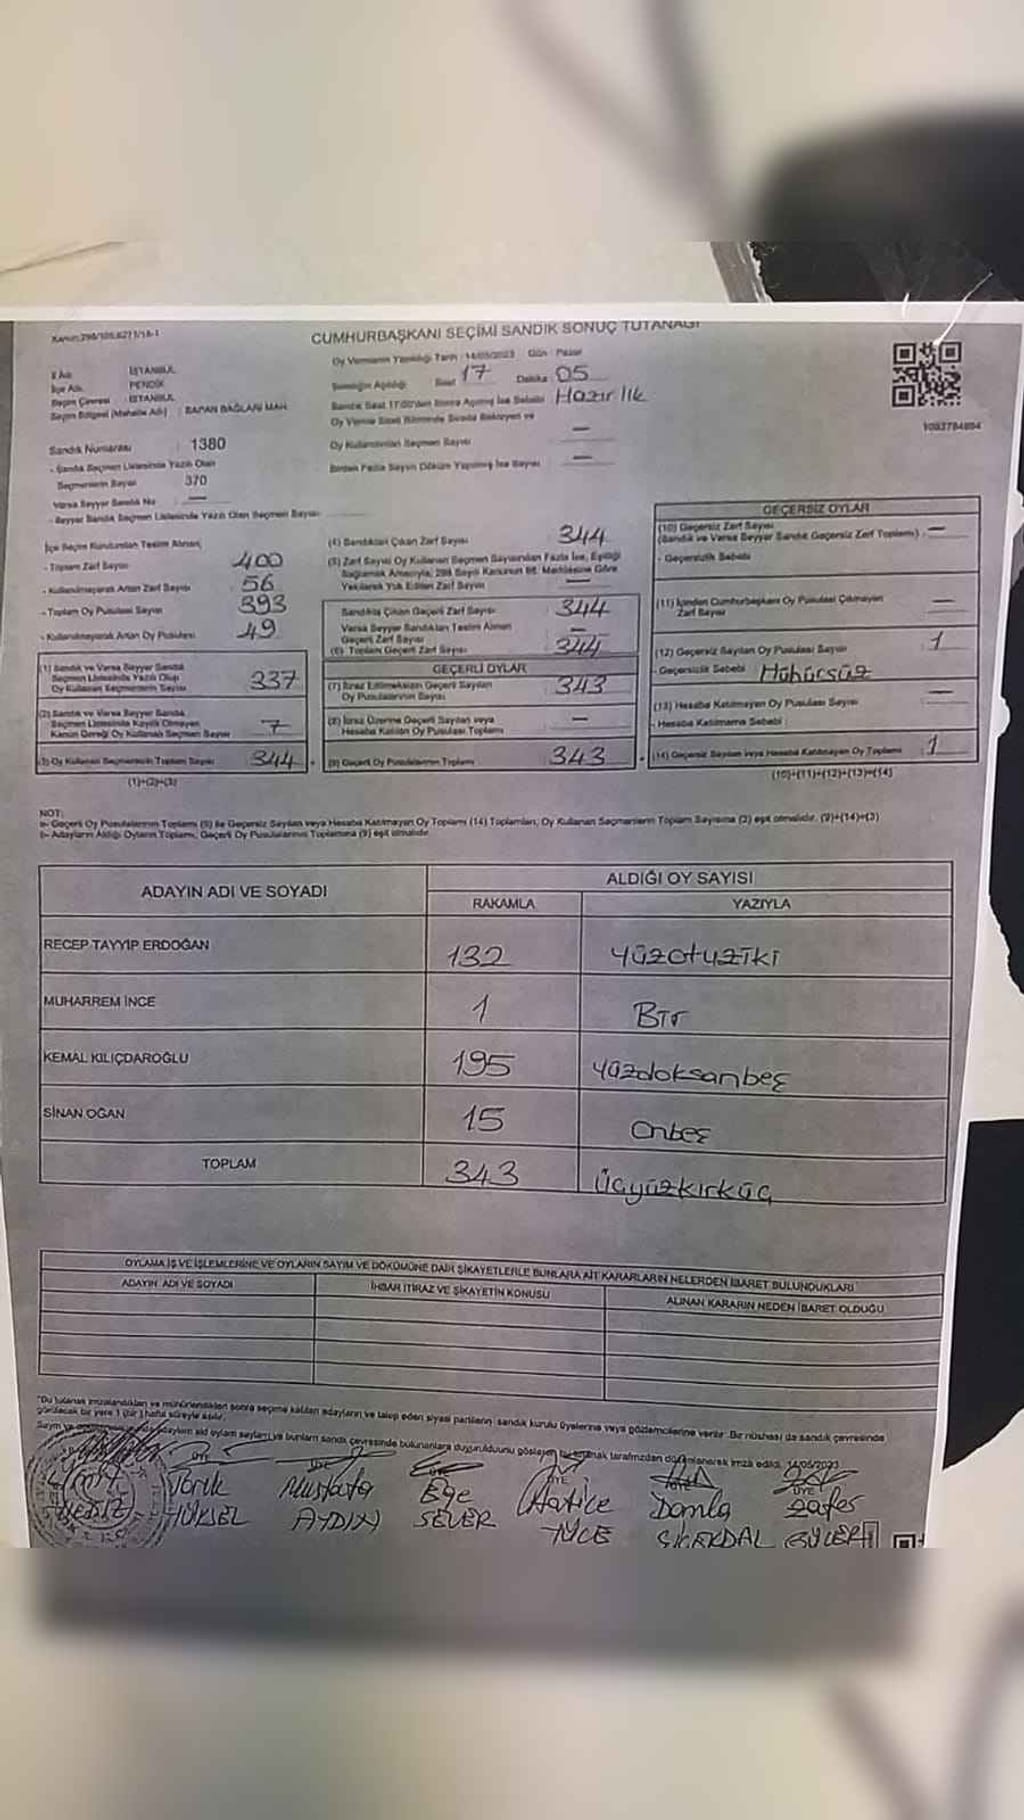 CUMHURBAŞKANI SEÇİMİ SANDIK SONUÇ TUTANAĞI
Oy Vermenin Yapıldığı Tarih : 14/05/2023 Gün : Pazar
Sandığın Açıldığı Saat 17 Dakika 05
Sandık Saat 17:00'den Sonra Açılmış İse Sebebi Hazırlık
Oy Verme Saati Bitiminde Sırada Bekleyen ve
Oy Kullandırılan Seçmen Sayısı —
Birden Fazla Sayım Döküm Yapılmış İse Sayısı —
1092784804
İl Adı İSTANBUL
İlçe Adı PENDİK
Seçim Çevresi İSTANBUL
Seçim Bölgesi (Mahalle Adı) : SAPAN BAĞLARI MAH.
Sandık Numarası : 1380
- Sandık Seçmen Listesinde Yazılı Olan
Seçmenlerin Sayısı 370
Varsa Seyyar Sandık No : —
- Seyyar Sandık Seçmen Listesinde Yazılı Olan Seçmen Sayısı
İlçe Seçim Kurulundan Teslim Alınan;
- Toplam Zarf Sayısı 400
- Kullanılmayarak Artan Zarf Sayısı 56
- Toplam Oy Pusulası Sayısı 393
- Kullanılmayarak Artan Oy Pusulası 49
(1) Sandık ve Varsa Seyyar Sandık
Seçmen Listesinde Yazılı Olup
Oy Kullanan Seçmenlerin Sayısı 337
(2) Sandık ve Varsa Seyyar Sandık
Seçmen Listesinde Kayıtlı Olmayan
Kanun Gereği Oy Kullanan Seçmen Sayısı 7
(3) Oy Kullanan Seçmenlerin Toplam Sayısı 344
(1)+(2)=(3)
(4) Sandıktan Çıkan Zarf Sayısı 344
(5) Zarf Sayısı Oy Kullanan Seçmen Sayısından Fazla İse, Eşitliği
Sağlamak Amacıyla, 298 Sayılı Kanunun 98. Maddesine Göre
Yakılarak Yok Edilen Zarf Sayısı —
Sandıkta Çıkan Geçerli Zarf Sayısı 344
Varsa Seyyar Sandıktan Teslim Alınan
Geçerli Zarf Sayısı —
(6) Toplam Geçerli Zarf Sayısı 344
GEÇERLİ OYLAR
(7) İtiraz Edilmeksizin Geçerli Sayılan
Oy Pusulalarının Sayısı 343
(8) İtiraz Üzerine Geçerli Sayılan veya
Hesaba Katılan Oy Pusulası Toplamı —
(9) Geçerli Oy Pusulalarının Toplamı 343
GEÇERSİZ OYLAR
(10) Geçersiz Zarf Sayısı
(Sandık ve Varsa Seyyar Sandık Geçersiz Zarf Toplamı) —
- Geçersizlik Sebebi
(11) İçinden Cumhurbaşkanı Oy Pusulası Çıkmayan
Zarf Sayısı —
(12) Geçersiz Sayılan Oy Pusulası Sayısı 1
- Geçersizlik Sebebi Mühürsüz
(13) Hesaba Katılmayan Oy Pusulası Sayısı —
- Hesaba Katılmama Sebebi
(14) Geçersiz Sayılan veya Hesaba Katılmayan Oy Toplamı 1
(10)+(11)+(12)+(13)=(14)
NOT:
a- Geçerli Oy Pusulalarının Toplamı (9) ile Geçersiz Sayılan veya Hesaba Katılmayan Oy Toplamı (14) Toplamları, Oy Kullanan Seçmenlerin Toplam Sayısına (3) eşit olmalıdır. (9)+(14)=(3)
b- Adayların Aldığı Oyların Toplamı, Geçerli Oy Pusulalarının Toplamına (9) eşit olmalıdır.
ADAYIN ADI VE SOYADI ALDIĞI OY SAYISI
RAKAMLA YAZIYLA
RECEP TAYYİP ERDOĞAN 132 yüzotuziki
MUHARREM İNCE 1 Bir
KEMAL KILIÇDAROĞLU 195 yüzdoksanbeş
SİNAN OĞAN 15 Onbeş
TOPLAM 343 üçyüzkırküç
OYLAMA İŞ VE İŞLEMLERİNE VE OYLARIN SAYIM VE DÖKÜMÜNE DAİR ŞİKAYETLERLE BUNLARA AİT KARARLARIN NELERDEN İBARET BULUNDUKLARI
ADAYIN ADI VE SOYADI İHBAR İTİRAZ VE ŞİKAYETİN KONUSU ALINAN KARARIN NEDEN İBARET OLDUĞU
"Bu tutanak imzalandıktan ve mühürlendikten sonra seçime katılan adayların ve talep eden siyasi partilerin sandık kurulu üyelerine veya gözlemcilerine verilir. Bir nüshası da sandık çevresinde
görülecek bir yere 1 (bir) hafta süreyle asılır.
ÜYE ÜYE ÜYE ÜYE ÜYE
Tarık Mustafa Ege Hatice Damla Zafer
YÜKSEL AYDIN SEVER YÜCE